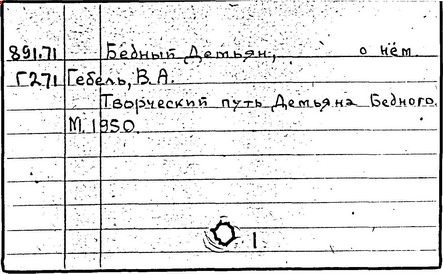 891.71 Бедный Демьян, о нём.
Г271 Гебель, В.А.
Творческий путь Демьяна Бедного.
М. 1950.
1